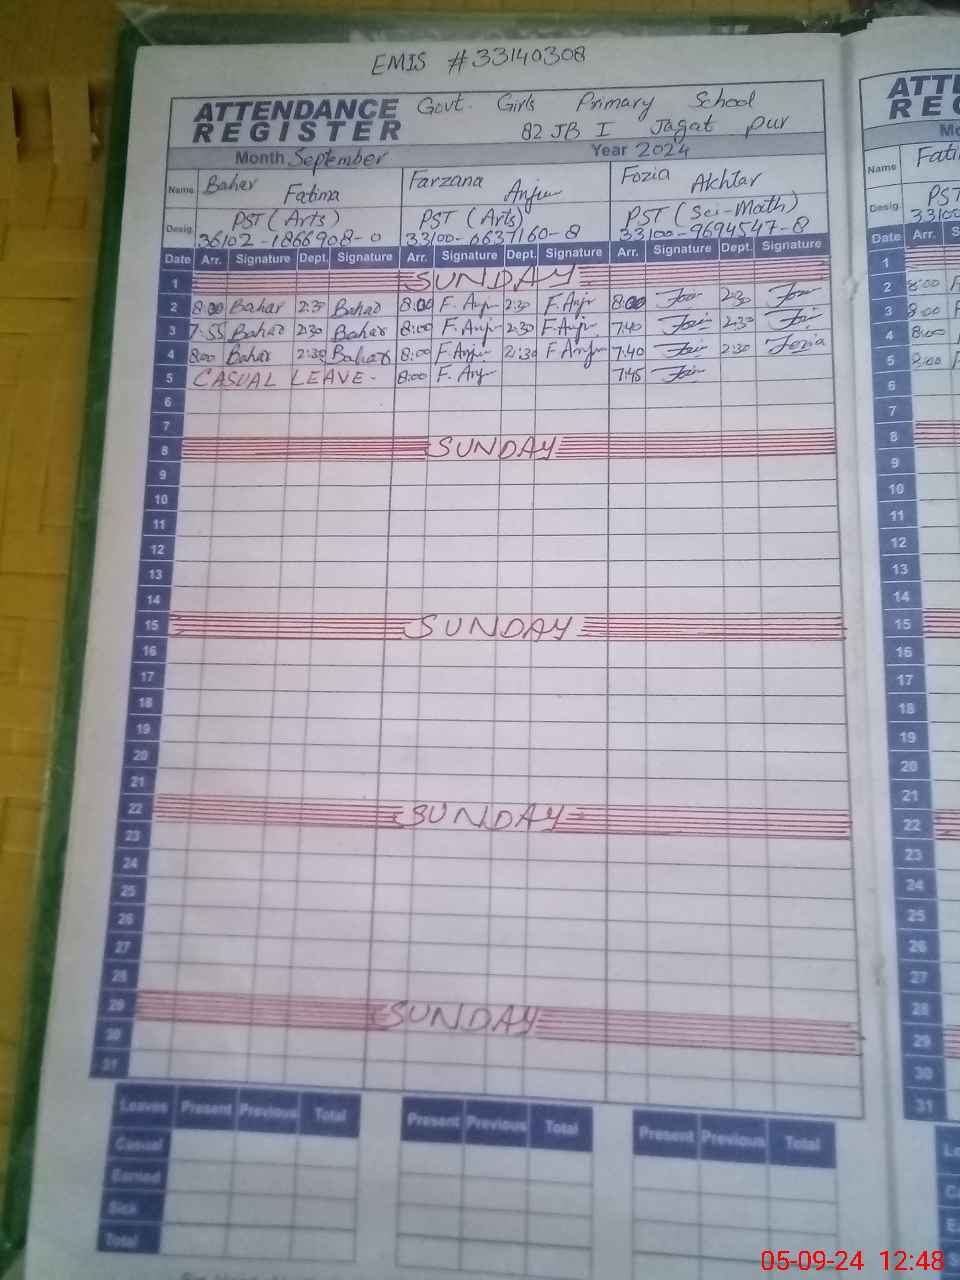 EMIS #33140308
ATTENDANCE REGISTER Govt. Girls Primary School
82 JB I Jagat pur
Month September Year 2024
Name Bahar Fatima Farzana Anjum Fozia Akhtar
Desig. PST (Arts) PST (Arts) PST (Sci-Math)
36102-1866908-0 33100-6637160-8 33100-9694547-8
Date Arr. Signature Dept. Signature Arr. Signature Dept. Signature Arr. Signature Dept. Signature
1 SUNDAY
2 8:00 Bahar 2:30 Bahar 8:00 F. Anjum 2:30 F. Anjum 8:00 2:30
3 7:55 Bahar 2:30 Bahar 8:00 F. Anjum 2:30 F. Anjum 7:40 2:30
4 8:00 Bahar 2:30 Bahar 8:00 F. Anjum 2:30 F Anjum 7:40 2:30 Fozia
5 CASUAL LEAVE- 8:00 F. Anjum 7:45
6
7
8 SUNDAY
9
10
11
12
13
14
15 SUNDAY
16
17
18
19
20
21
22 SUNDAY
23
24
25
26
27
28
29 SUNDAY
30
31
Leaves Present Previous Total Present Previous Total Present Previous Total
Casual
Earned
Sick
Total
ATT
REG
Name Fati
Desig. PST
33100
Date Arr. S
1
2 8:00
3 8:00
4 8:00
5 8:00
6
7
8
9
10
11
12
13
14
15
16
17
18
19
20
21
22
23
24
25
26
27
28
29
30
31
05-09-24 12:48